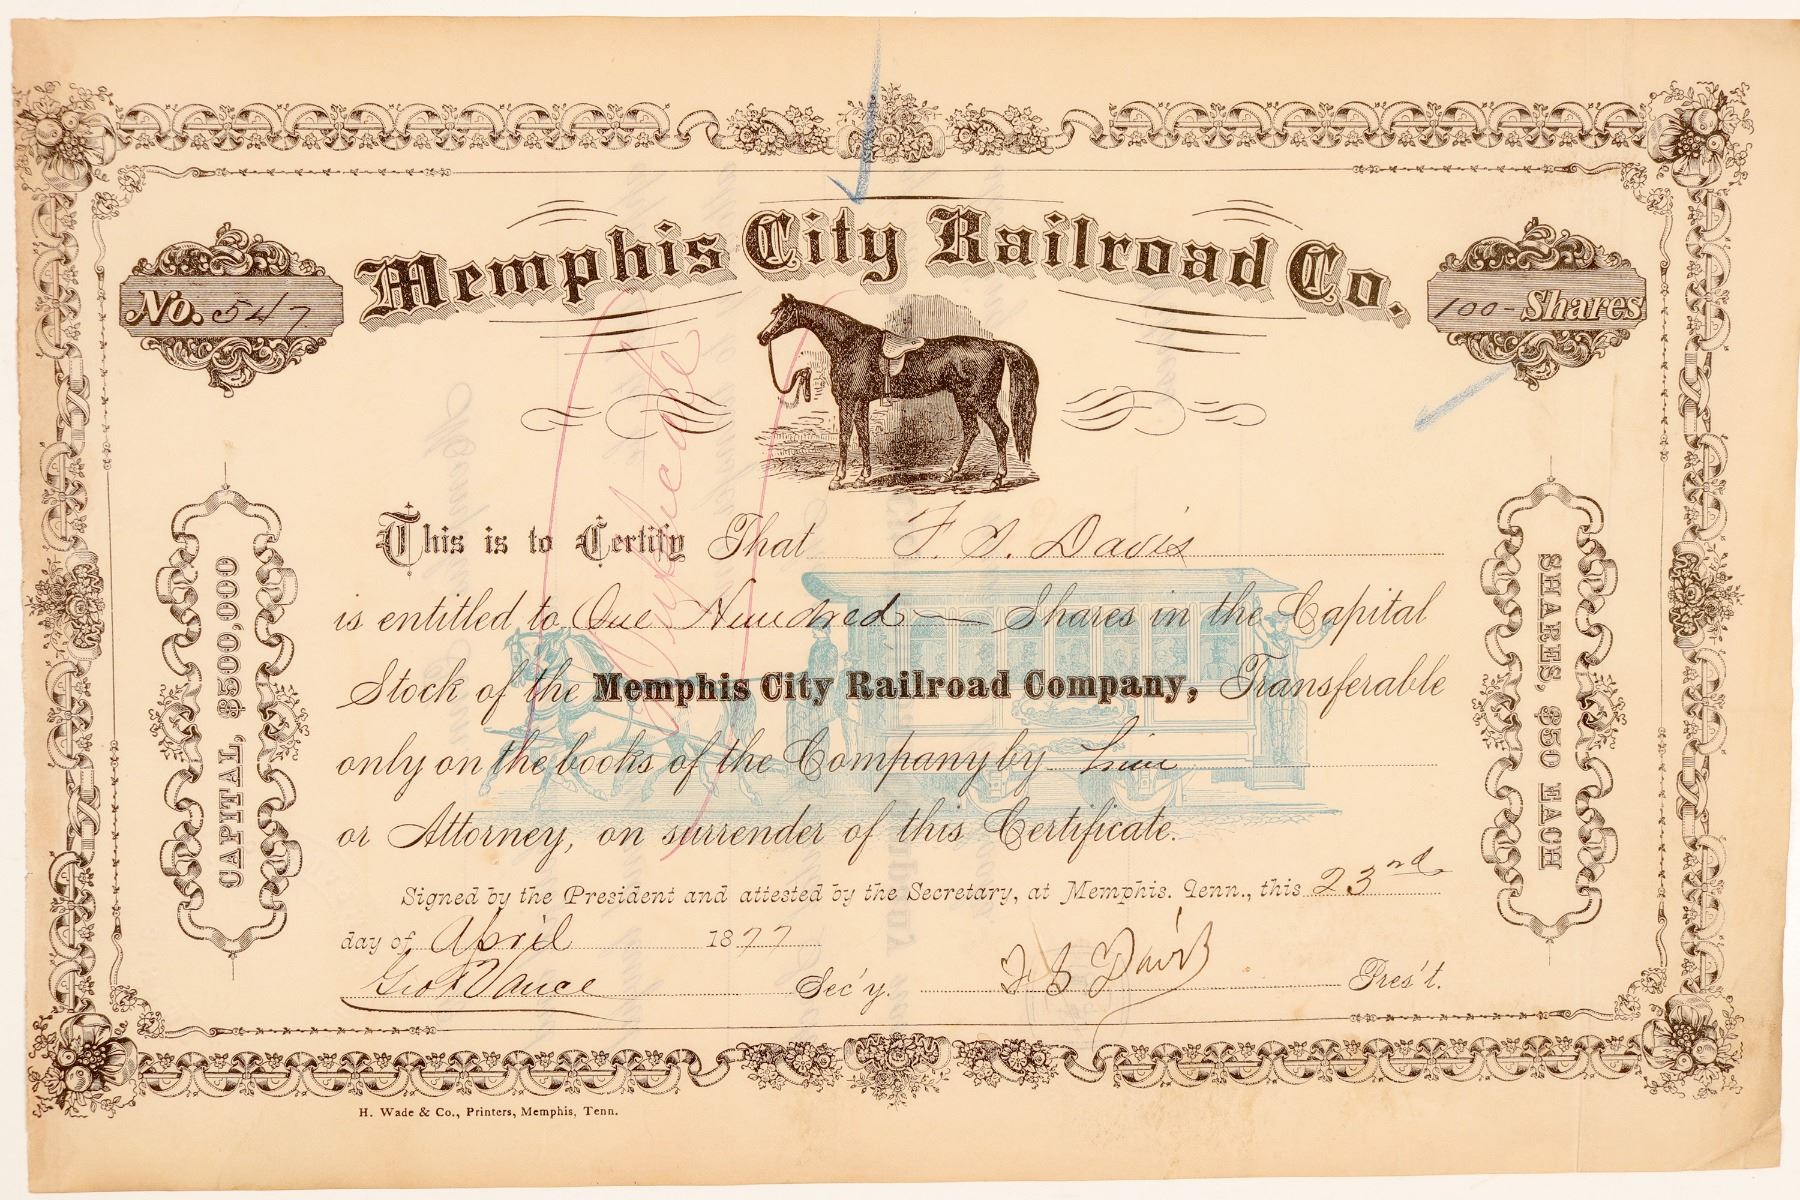 Memphis City Railroad Co.
No. 547
100 - Shares
Duplicate
CAPITAL, $500,000
SHARES, $50 EACH
This is to Certify That F. S. Davis
is entitled to One Hundred Shares in the Capital
Stock of the Memphis City Railroad Company, Transferable
only on the books of the Company by him
or Attorney, on surrender of this Certificate.
Signed by the President and attested by the Secretary, at Memphis. Tenn., this 23rd
day of April 1877
Geo F Vance Sec'y. F S Davis Pres't.
H. Wade & Co., Printers, Memphis, Tenn.